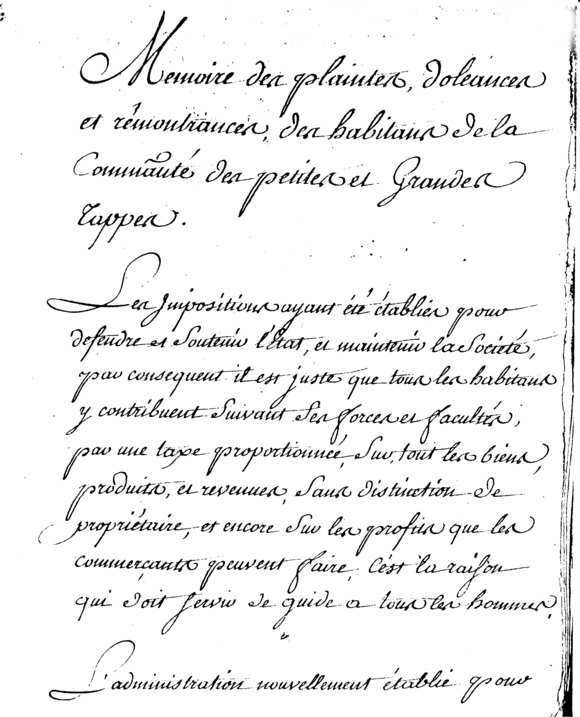 Memoire des plaintes, doleances
et rémontrances, des habitans de la
Commãuté des petites et Grandes
Tappes.
Les Jmpositions ayant été établies pour
deffendre et Soutenir l'Etat, et maintenir la Societé,
par consequent il est juste que tous les habitans
y contribuent Suivant Ses forces et facultés,
par une taxe proportionnée, Sur, tout les biens,
produits, et revenues, Sans distinction de
propriétaire, et encore Sur les profits que les
commerçants peuvent faire, C'est la raison
qui doit servir de guide a tous les hommes,
L'administration nouvellement établie pour